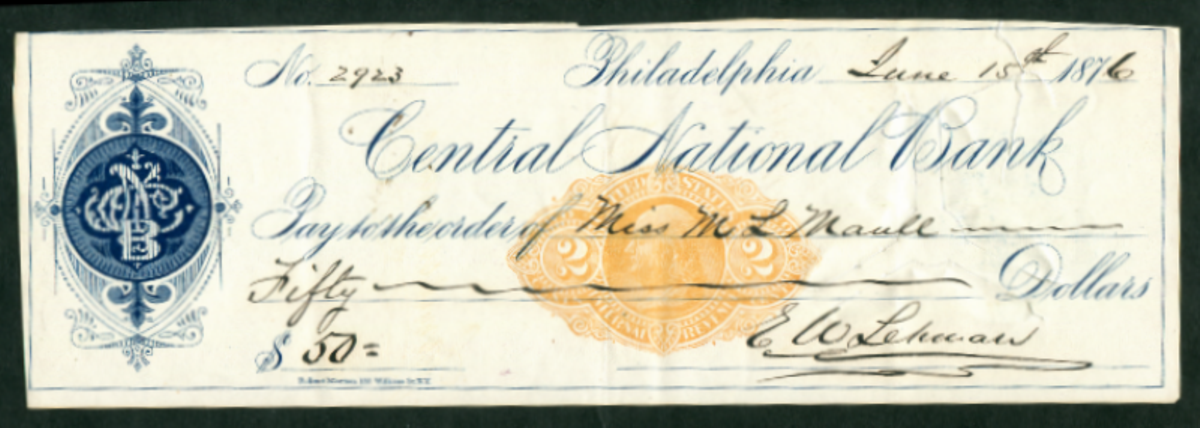 No. 2923 Philadelphia June 15th 1876
Central National Bank
UNITED STATES
Pay to the order of Miss M L Maull
2 2
Fifty Dollars
INTERNAL REVENUE
E W Lehman
$ 50=